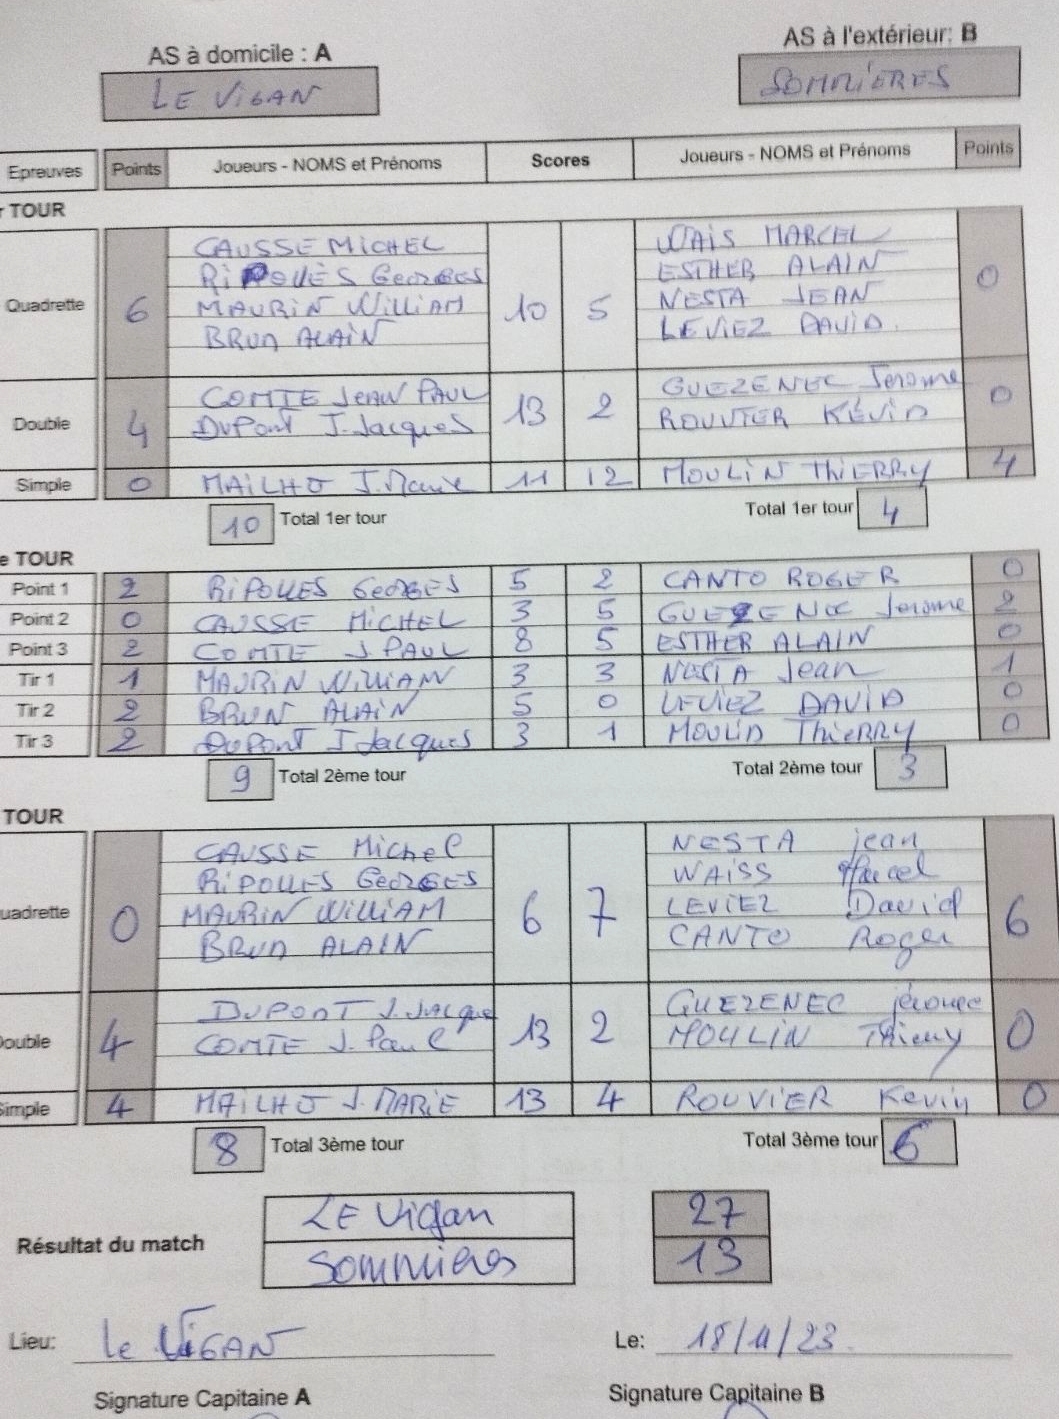 AS à domicile : A
AS à l'extérieur: B
LE VIGAN
SOMMIÈRES
Epreuves Points Joueurs - NOMS et Prénoms Scores Joueurs - NOMS et Prénoms Points
r TOUR
CAUSSE MICHEL WAIS MARCEL
RIPOLLÈS GEORGES ESTHER ALAIN
Quadrette 6 MAURIN WILLIAM 10 5 NESTA JEAN 0
BRUN ALAIN LEVIEZ DAVID
COMTE JEAN PAUL GUEZENEC Jerome
Double 4 DUPONT J.Jacques 13 2 ROUVIER KÉVIN 0
Simple 0 MAILHO J.Marie 11 12 MOULIN THIERRY 4
10 Total 1er tour Total 1er tour 4
e TOUR
Point 1 2 RIPOLLES GEORGES 5 2 CANTO ROGER 0
Point 2 0 CAUSSE MICHEL 3 5 GUEZENEC Jerome 2
Point 3 2 COMTE J.PAUL 8 5 ESTHER ALAIN 0
Tir 1 1 MAURIN WILLIAM 3 3 NESTA Jean 1
Tir 2 2 BRUN ALAIN 5 0 LEVIEZ DAVID 0
Tir 3 2 DUPONT J Jacques 3 1 MOULIN THIERRY 0
9 Total 2ème tour Total 2ème tour 3
TOUR
CAUSSE Michel NESTA jean
RIPOLLES GEORGES WAISS Marcel
uadrette 0 MAURIN WILLIAM 6 7 LEVIEZ David 6
BRUN ALAIN CANTO Roger
DUPONT J.JACQUE GUEZENEC jérome
Double 4 COMTE J.Paul 13 2 MOULIN Thierry 0
Simple 4 MAILHO J.MARIE 13 4 ROUVIER Kevin 0
8 Total 3ème tour Total 3ème tour 6
Résultat du match
LE Vigan 27
Sommieres 13
Lieu: Le VIGAN Le: 18/11/23
Signature Capitaine A Signature Capitaine B